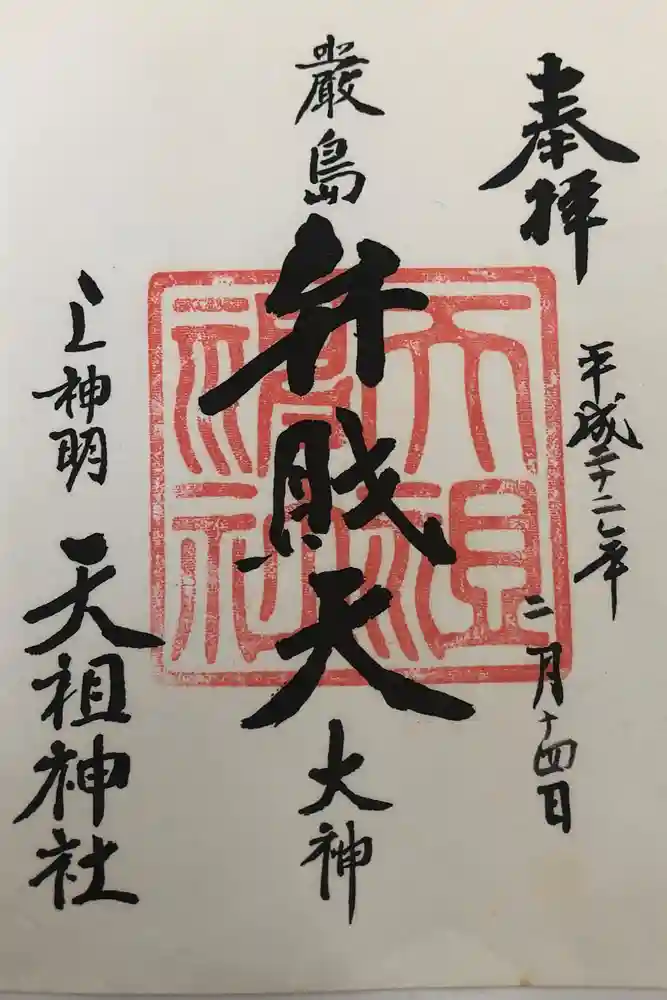 奉拝
平成二十二年
二月十四日
嚴島
弁財天
大神
上神明
天祖神社
天祖神社